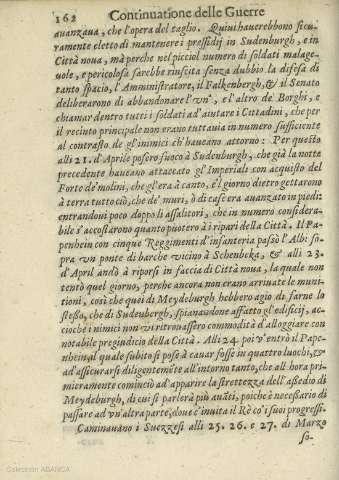 162 Continuatione delle Guerre
auanzaua, che l'opera del taglio. Quiui hauerebbono sicu-
ramente eletto di mantenere i pressidij in Sudenburgh, e in
Città noua, mà perche nel picciol numero di soldati malage-
uole, e pericolosa sarebbe riuscita senza dubbio la difesa di
tanto spacio, l'Amministratore, il Falkenbergh, & il Senato
deliberarono di abbandonare l'vn', e l'altro de' Borghi, e
chiamar dentro tutti i soldati ad'aiutare i Cittadini, che per
il recinto principale non erano tuttauia in numero sufficiente
al contrasto de gl'inimici ch'haueano attorno: Per questo
alli 21. d'Aprile posero fuoco à Sudenburgh, che già la notte
precedente haueano attaccato gl'Imperiali con acquisto del
Forte de' molini, che gl'era à canto, e'l giorno dietro gettarono
à terra tutto ciò, che de' muri, ò di case era auanzato in piedi:
entrandoui poco doppo li assalitori, che in numero considera-
bile s'accostarono quanto puotero à i ripari della Città. Il Pa-
penhein con cinque Reggimenti d'infanteria passò l'Albi so-
pra vn ponte di barche vicino à Schenbeka, & alli 23.
d'April andò à riporsi in faccia di Città noua, la quale non
tentò quel giorno, perche ancora non erano arriuate le muni-
tioni, così che quei di Meydeburgh hebbero agio di farne lo
stesso, che di Sudenburgh, spianandone affatto gl'edificij, ac-
cioche i nimici non vi ritrouassero commodità d'alloggiare con
notabile pregiudicio della Città. Alli 24. poi v'entrò il Pape-
nheim, al quale subito si pose à cauar fosse in quattro luochi, &
ad'assicurarsi diligentemẽte all'intorno tanto, che all'hora pri-
mieramente cominciò ad'apparire la strettezza dell'assedio di
Meydeburgh, di cui si parlerà più auãti, poiche è necessario di
passare ad vn'altra parte, doue c'inuita il Rè co' i suoi progressi.
Caminauano i Suezzesi alli 25. 26. e 27. di Marzo
so-
Colección ABANCA